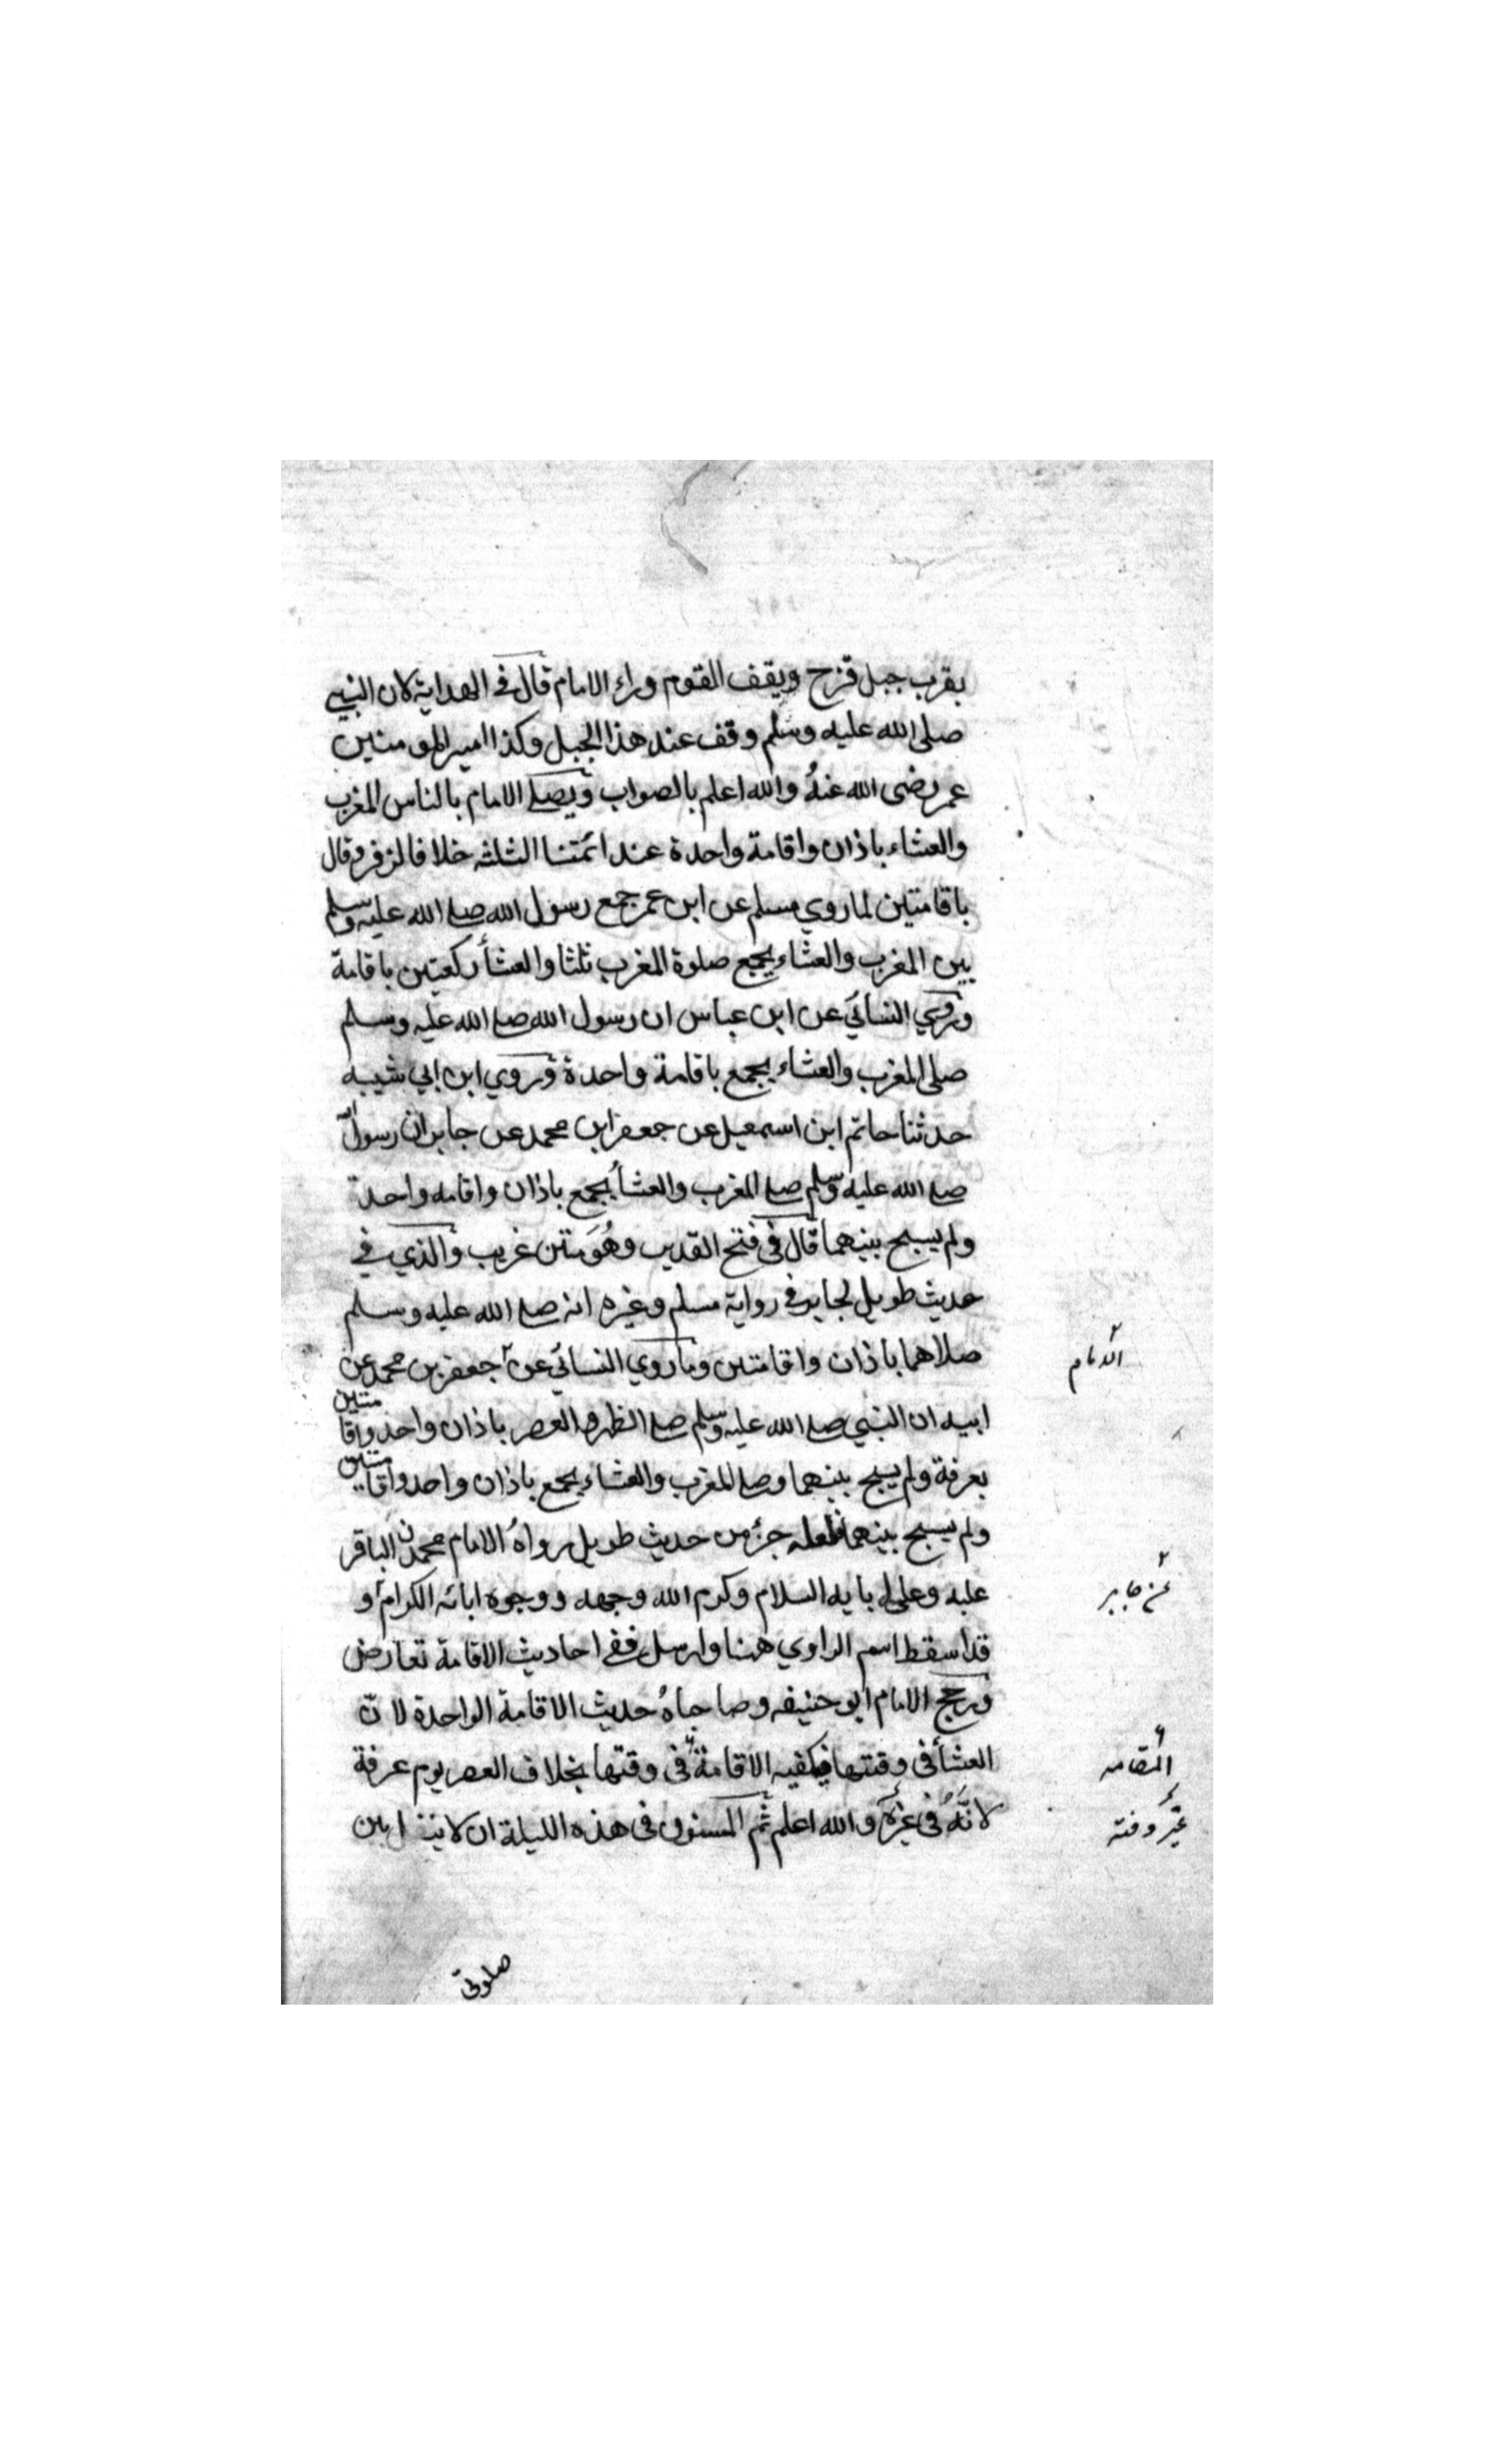 بقرب جبل قزح ويقف القوم وراء الامام قال في الهداية لان النبي
صلى الله عليه وسلم وقف عند هذا الجبل وكذا امير المومنين
عمر رضى الله عنهُ والله اعلم بالصواب ويصلے الامام بالناس المغرب
والعشاء باذان واقامة واحدة عند ائمتنا الثلثه خلافا لزفر وقال
باقامتين لما روي مسلم عن ابن عمر جمع رسول الله صلے الله عليه وسلم
بين المغرب والعشاء بجمع صلوة المغرب ثلثا والعشأ ركعتين باقامة
وروي النسائي عن ابن عباس ان رسول الله صلے الله عليه وسلم
صلى المغرب والعشاء بجمع باقامة واحدة وروي ابن ابي شيبه
حدثنا حاتم ابن اسمعيل عن جعفر ابن محمد عن جابر ان رسول الله
صلے الله عليه وسلم صلے المغرب والعشأ بجمع باذان واقامه واحدة
ولم يسبح بينهما قال في فتح القدير وهُوَ متن غريب والذي في
حديث طويل لجابر في رواية مسلم وغيره انه صلے الله عليه وسلم
صلاهما باذان واقامتين وما روي النسائي عن جعفر بن محمد عن
الامام
ابيه ان النبي صلے الله عليه وسلم صلے الظهر والعصر باذان واحد واقامتين
بعرفة ولم يسبح بينهما وصلے المغرب والعشاء بجمع باذان واحد واقامتين
ولم يسبح بينهما فلعله جزء من حديث طويل رواهُ الامام محمد الباقر
عليه وعلى ابايه السلام وكرم الله وجهه ووجوه ابائه الكرام و
عن جابر
قد اسقط اسم الراوي ههنا وارسل ففے احاديث الاقامة تعارض
ورجح الامام ابو حنيفه وصاحباهُ حديث الاقامة الواحدة لان
العشأ في وقتها فيكفيه الاقامة في وقتها بخلاف العصر يوم عرفة
المقامه
لانَّهُ في غيره والله اعلم ثم المسنون في هذه الليلة ان لا ينزل بين
غير وقته
صلوتى